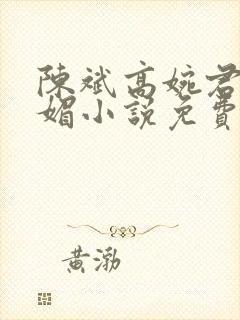 陳斌高婉君
媚小說免費
黃渤